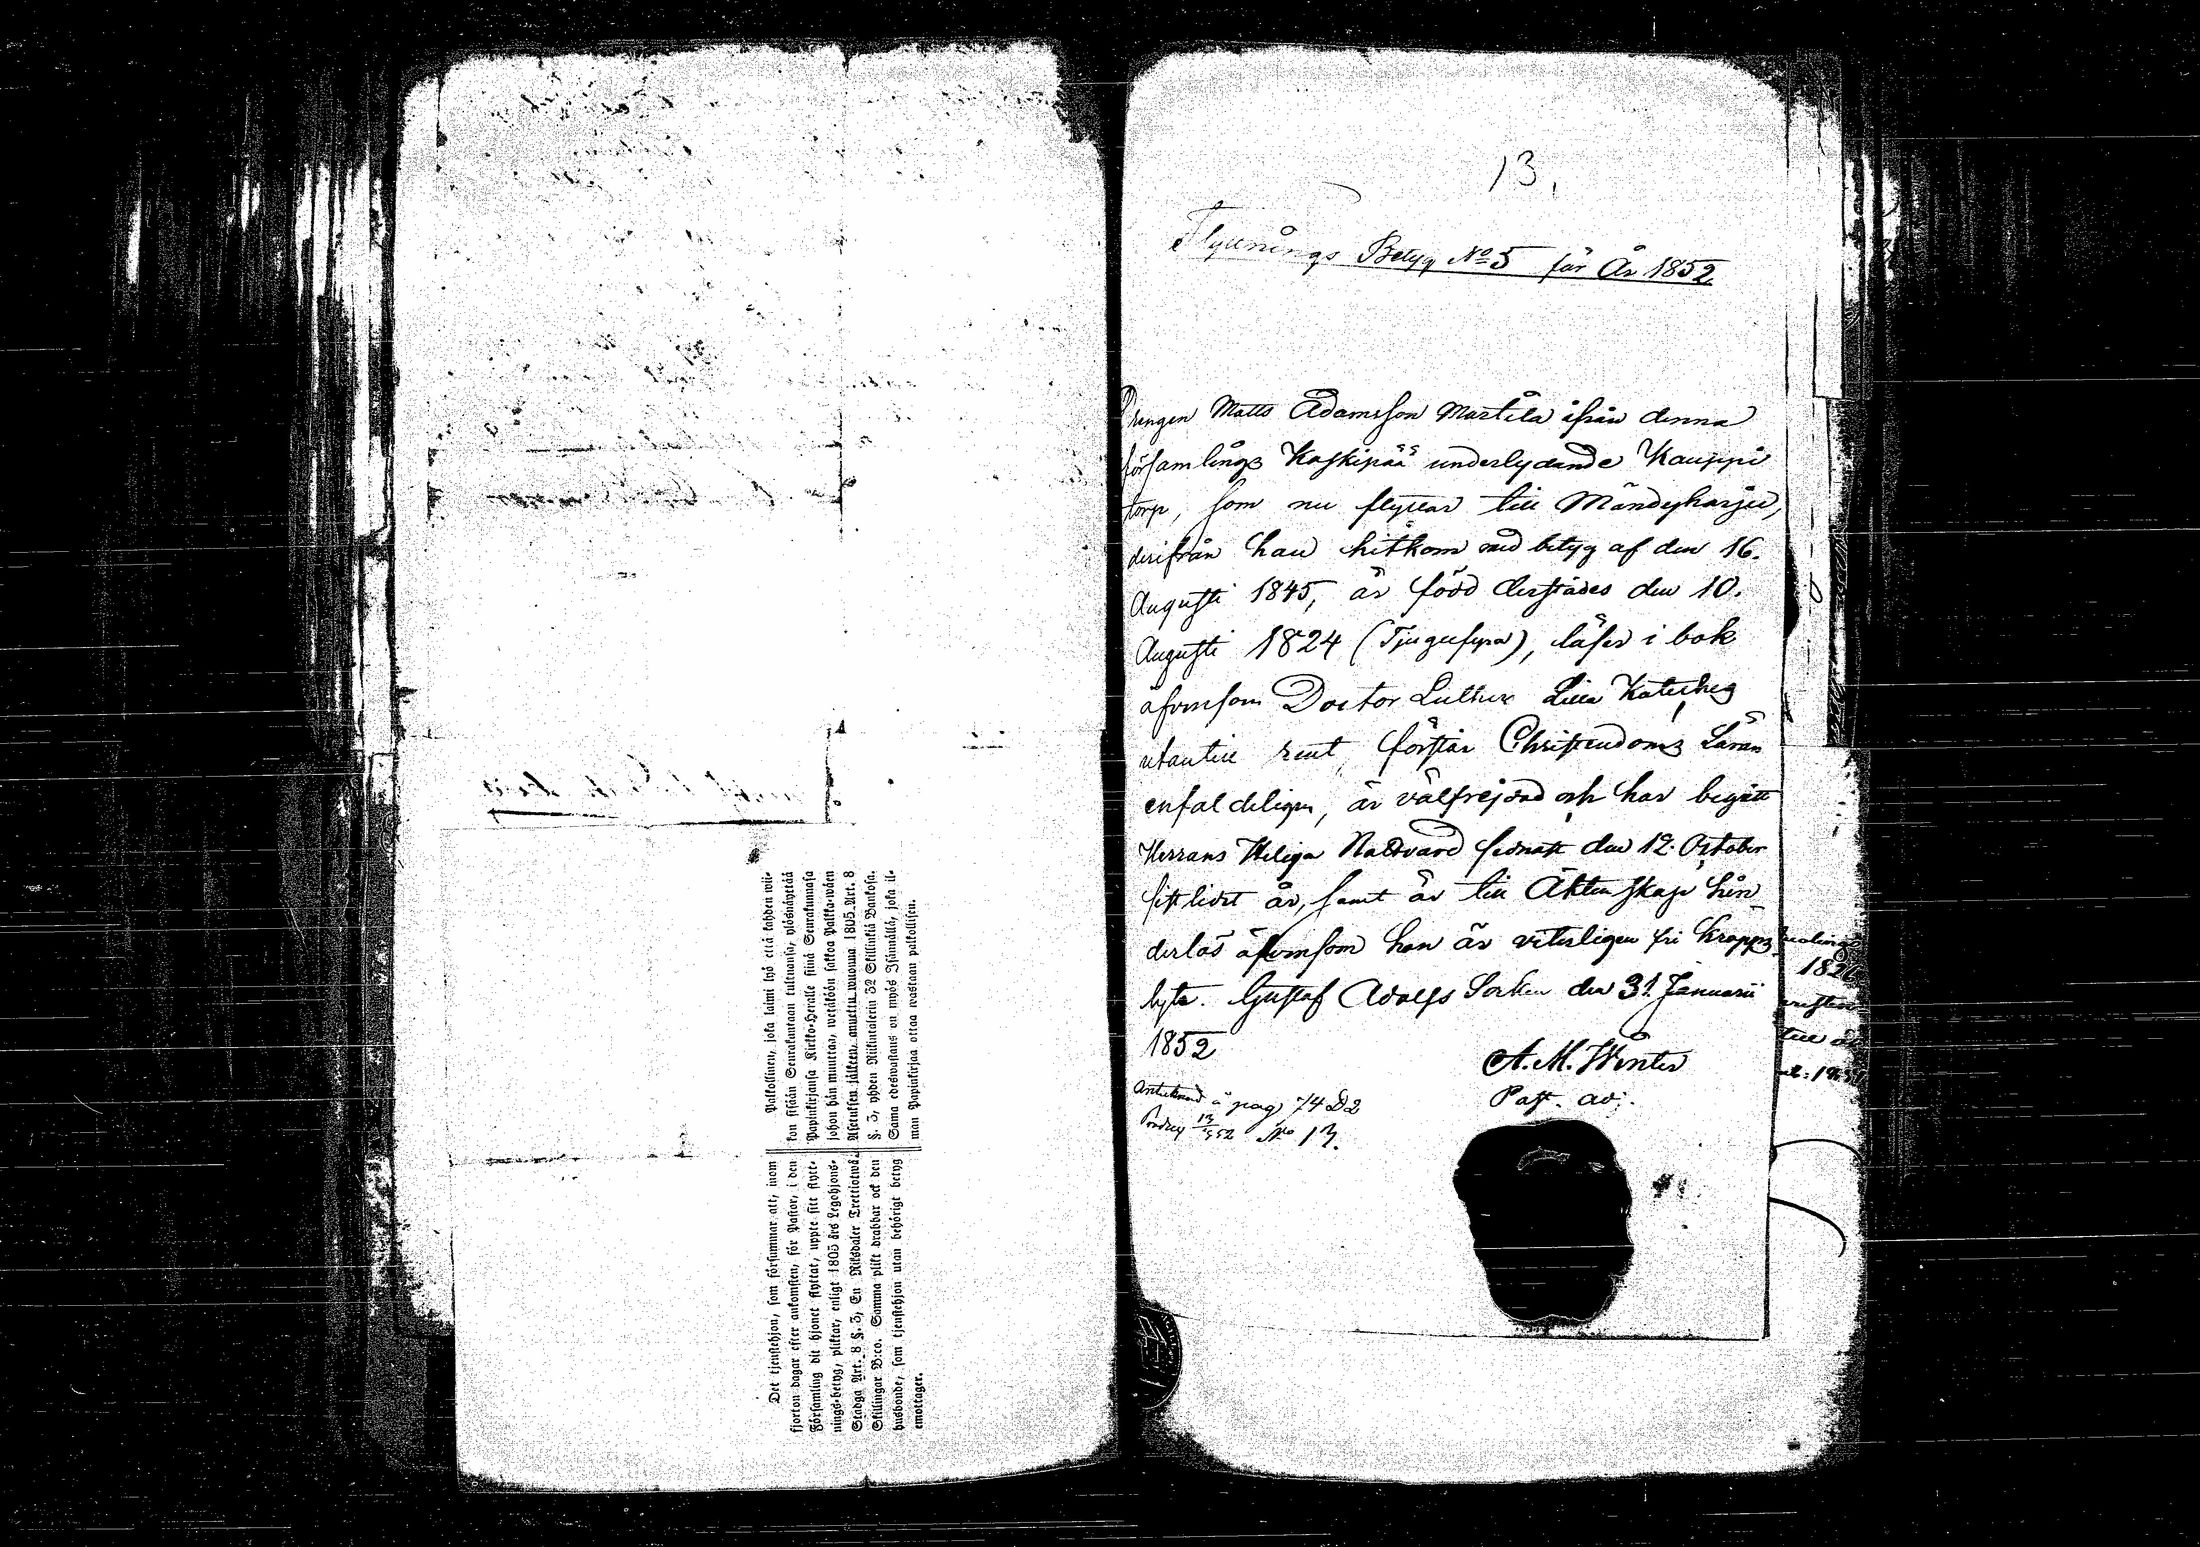 Palkollinen, joka laimi lyö että kahden wii-
kon sisään Seurakuntaan tultuansa, ylösnäyttää
Papinkirjansa Kirkko-Herralle siinä Seurakunnasa
johon hän muuttaa, wetäköön sakkoa Palkka-wäen
Asetuksen jälkeen, annettu wuonna 1805. Art. 8
§. 3, yhden Riikintalerin 32 Skillinkiä Bankosa.
Sama edeswastaus on myös Isännällä, joka il-
man Papinkirjaa ottaa wastaan palkollisen.
Det tjenstehjon, som försummar att, inom
fjorton dagar efter ankomsten, för Pastor, i den
Församling dit hjonet flyttat, uppte sitt flytt-
nings-betyg, pliktar, enligt 1805 års Legohjons-
Stadga Art. 8 §. 3, En Riksdaler Trettiotwå
Skillingar B:co. Samma plikt drabbar ock den
husbonde, som tjenstehjon utan behörigt betyg
emottager.
13,
Flyttnings Betyg No 5 för År 1852
Drengen Matts Adamsson Martila ifrån denna
församlings Kaskipää underlydande Kauppi
torp, som nu flyttar till Mändyharju,
derifrån han hitkom med betyg af den 16.
Augusti 1845, är född derstädes den 10.
Augusti 1824 (Tjugufyra), läser i bok
äfvensom Doctor Luthers Lilla Kateches
utantill rent, förstår Christendoms Läran
enfaldeligen, är välfrejdad och har begått
Herrans Heliga Nattvard sednast den 12. October
sistlidet år, samt är till Äktenskap hin-
derlös äfvensom han är veterligen fri kropps
lyte. Gustaf Adolfs Socken den 31. Januarii
1852
A. M. Winter
Past. adj.
Antecknad å pag 74 D2
No 13.